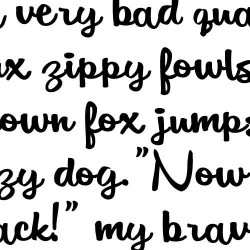 very bad qua
x zippy fowls
own fox jumps
zy dog. "Now
ack!" my brav